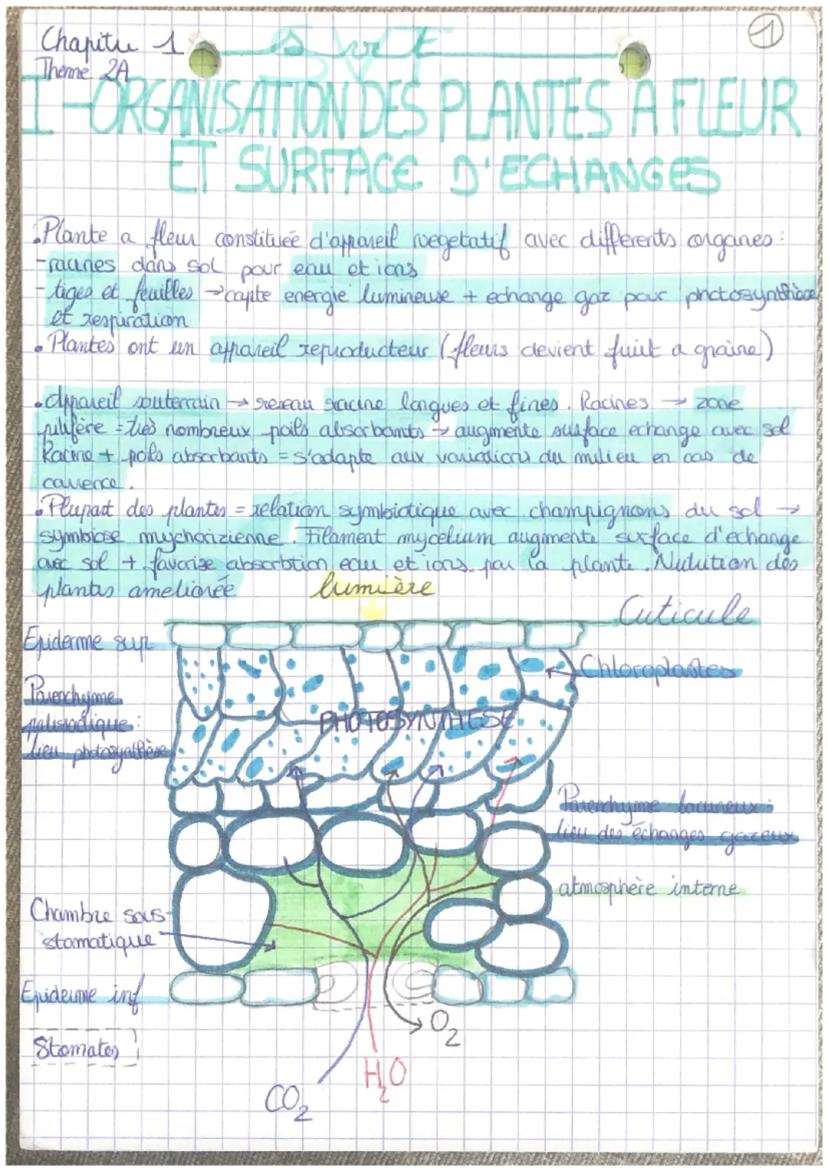 Chapitre 1
svt
1
Thème 2A
I-ORGANISATION DES PLANTES A FLEUR
ET SURFACE D'ECHANGES
•Plante a fleur constituée d'appareil vegetatif avec differents organes:
-racines dans sol pour eau et ions
-tiges et feuilles →capte energie lumineuse + echange gaz pour photosynthèse
et respiration
• Plantes ont un appareil reproducteur (fleurs devient fuit a graine)
•Appareil souterrain → reseau racine longues et fines. Racines → zone
pilifère = très nombreux poils absorbants → augmente surface echange avec sol
Racine + poils absorbants = s'adapte aux variations du milieu en cas de
carence.
•Plupart des plantes = relation symbiotique avec champignons du sol →
symbiose mychorizienne. Filament mycelium augmente surface d'echange
avec sol + favorise absorbtion eau et ions par la plante. Nutrition des
plantes ameliorée
lumière
Cuticule
Epiderme sup
Chloroplastes
Parenchyme
palissadique:
lieu photosynthèse
PHOTOSYNTHESE
Parenchyme lacuneux:
lieu des échanges gazeux
atmosphère interne
Chambre sous-
stomatique
Epiderme inf
O2
Stomates
H2O
CO2